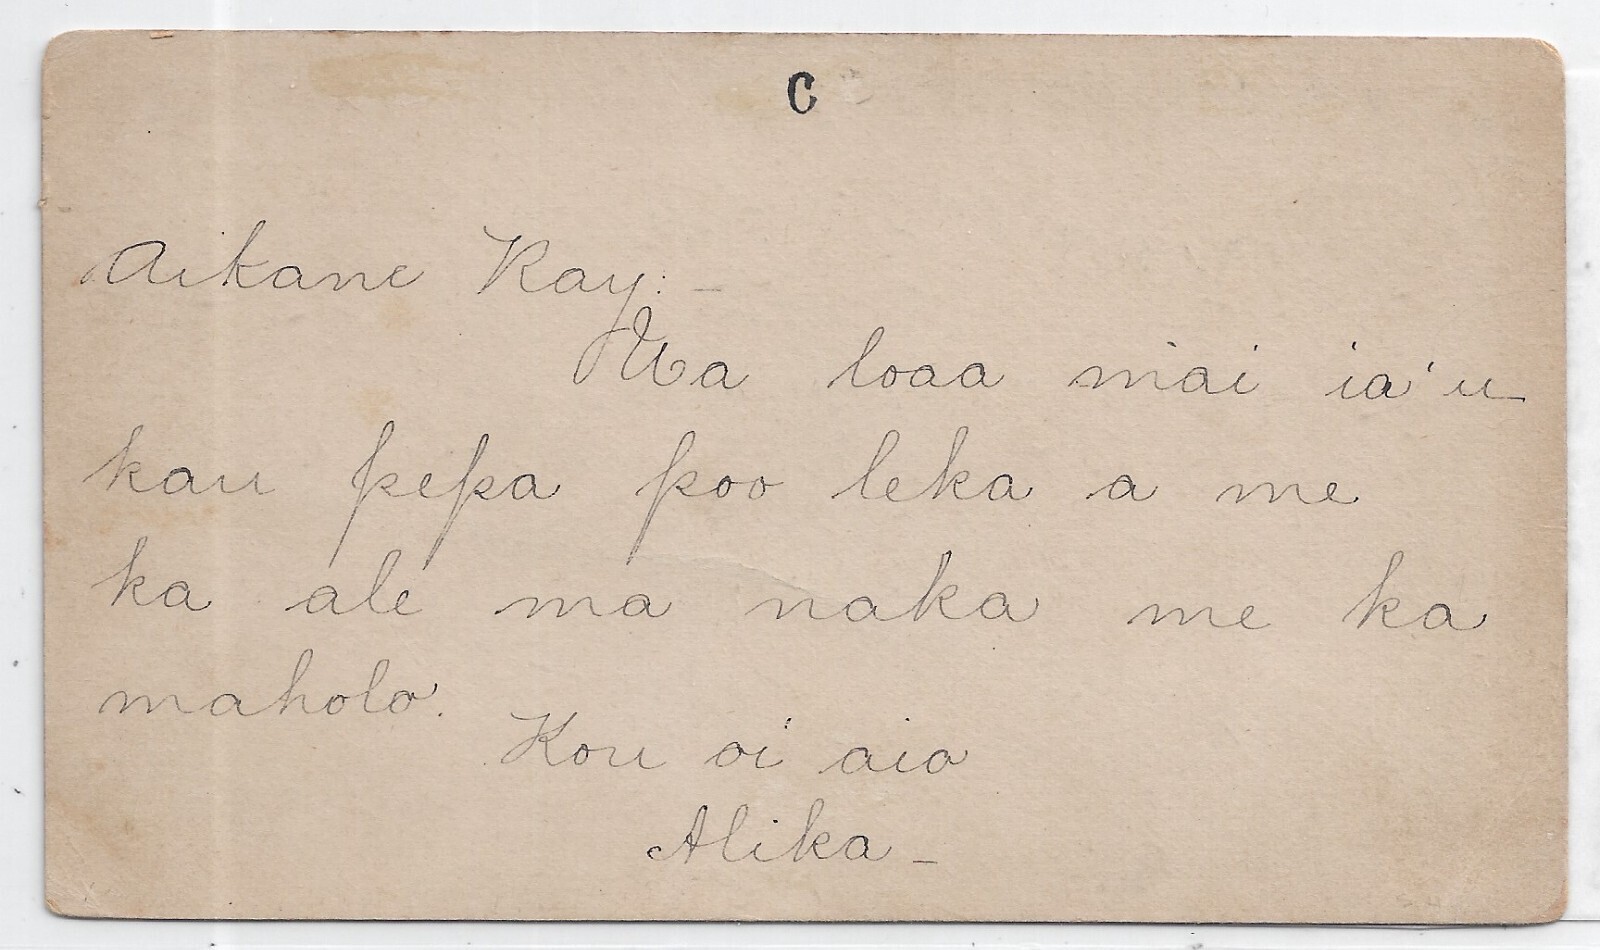 C
Aikane Kay: -
Ua loaa mai ia'u
kau pepa poo leka a me
ka ale ma naka me ka
maholo.
Kou oi aio
Alika -